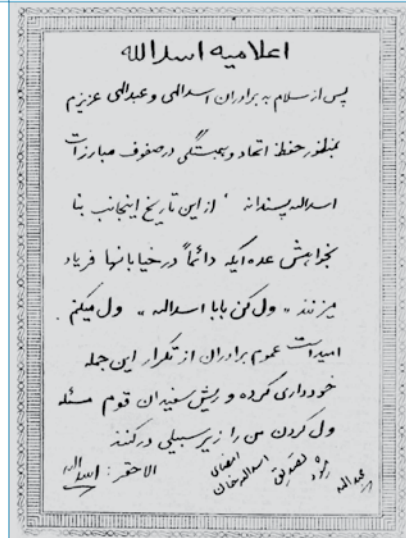 اعلامیه اسدالله
پس از سلام به برادران اسداللهی و عبداللهی عزیزم
بمنظور حفظ اتحاد و همبستگی در صفوف مبارزات
اسداله پسندانه ' از این تاریخ اینجانب بنا
بخواهش عده ایکه دائماً در خیابانها فریاد
میزنند " ول کن بابا اسداله " ول میکنم .
امیداست عموم برادران از تکرار این جمله
خودداری کرده و ریش سفیدان قوم مسئله
ول کردن من را زیر سبیلی در کنند
الاحقر : اسداله
امضای اسداله خان تصدیق میشود
عبداله